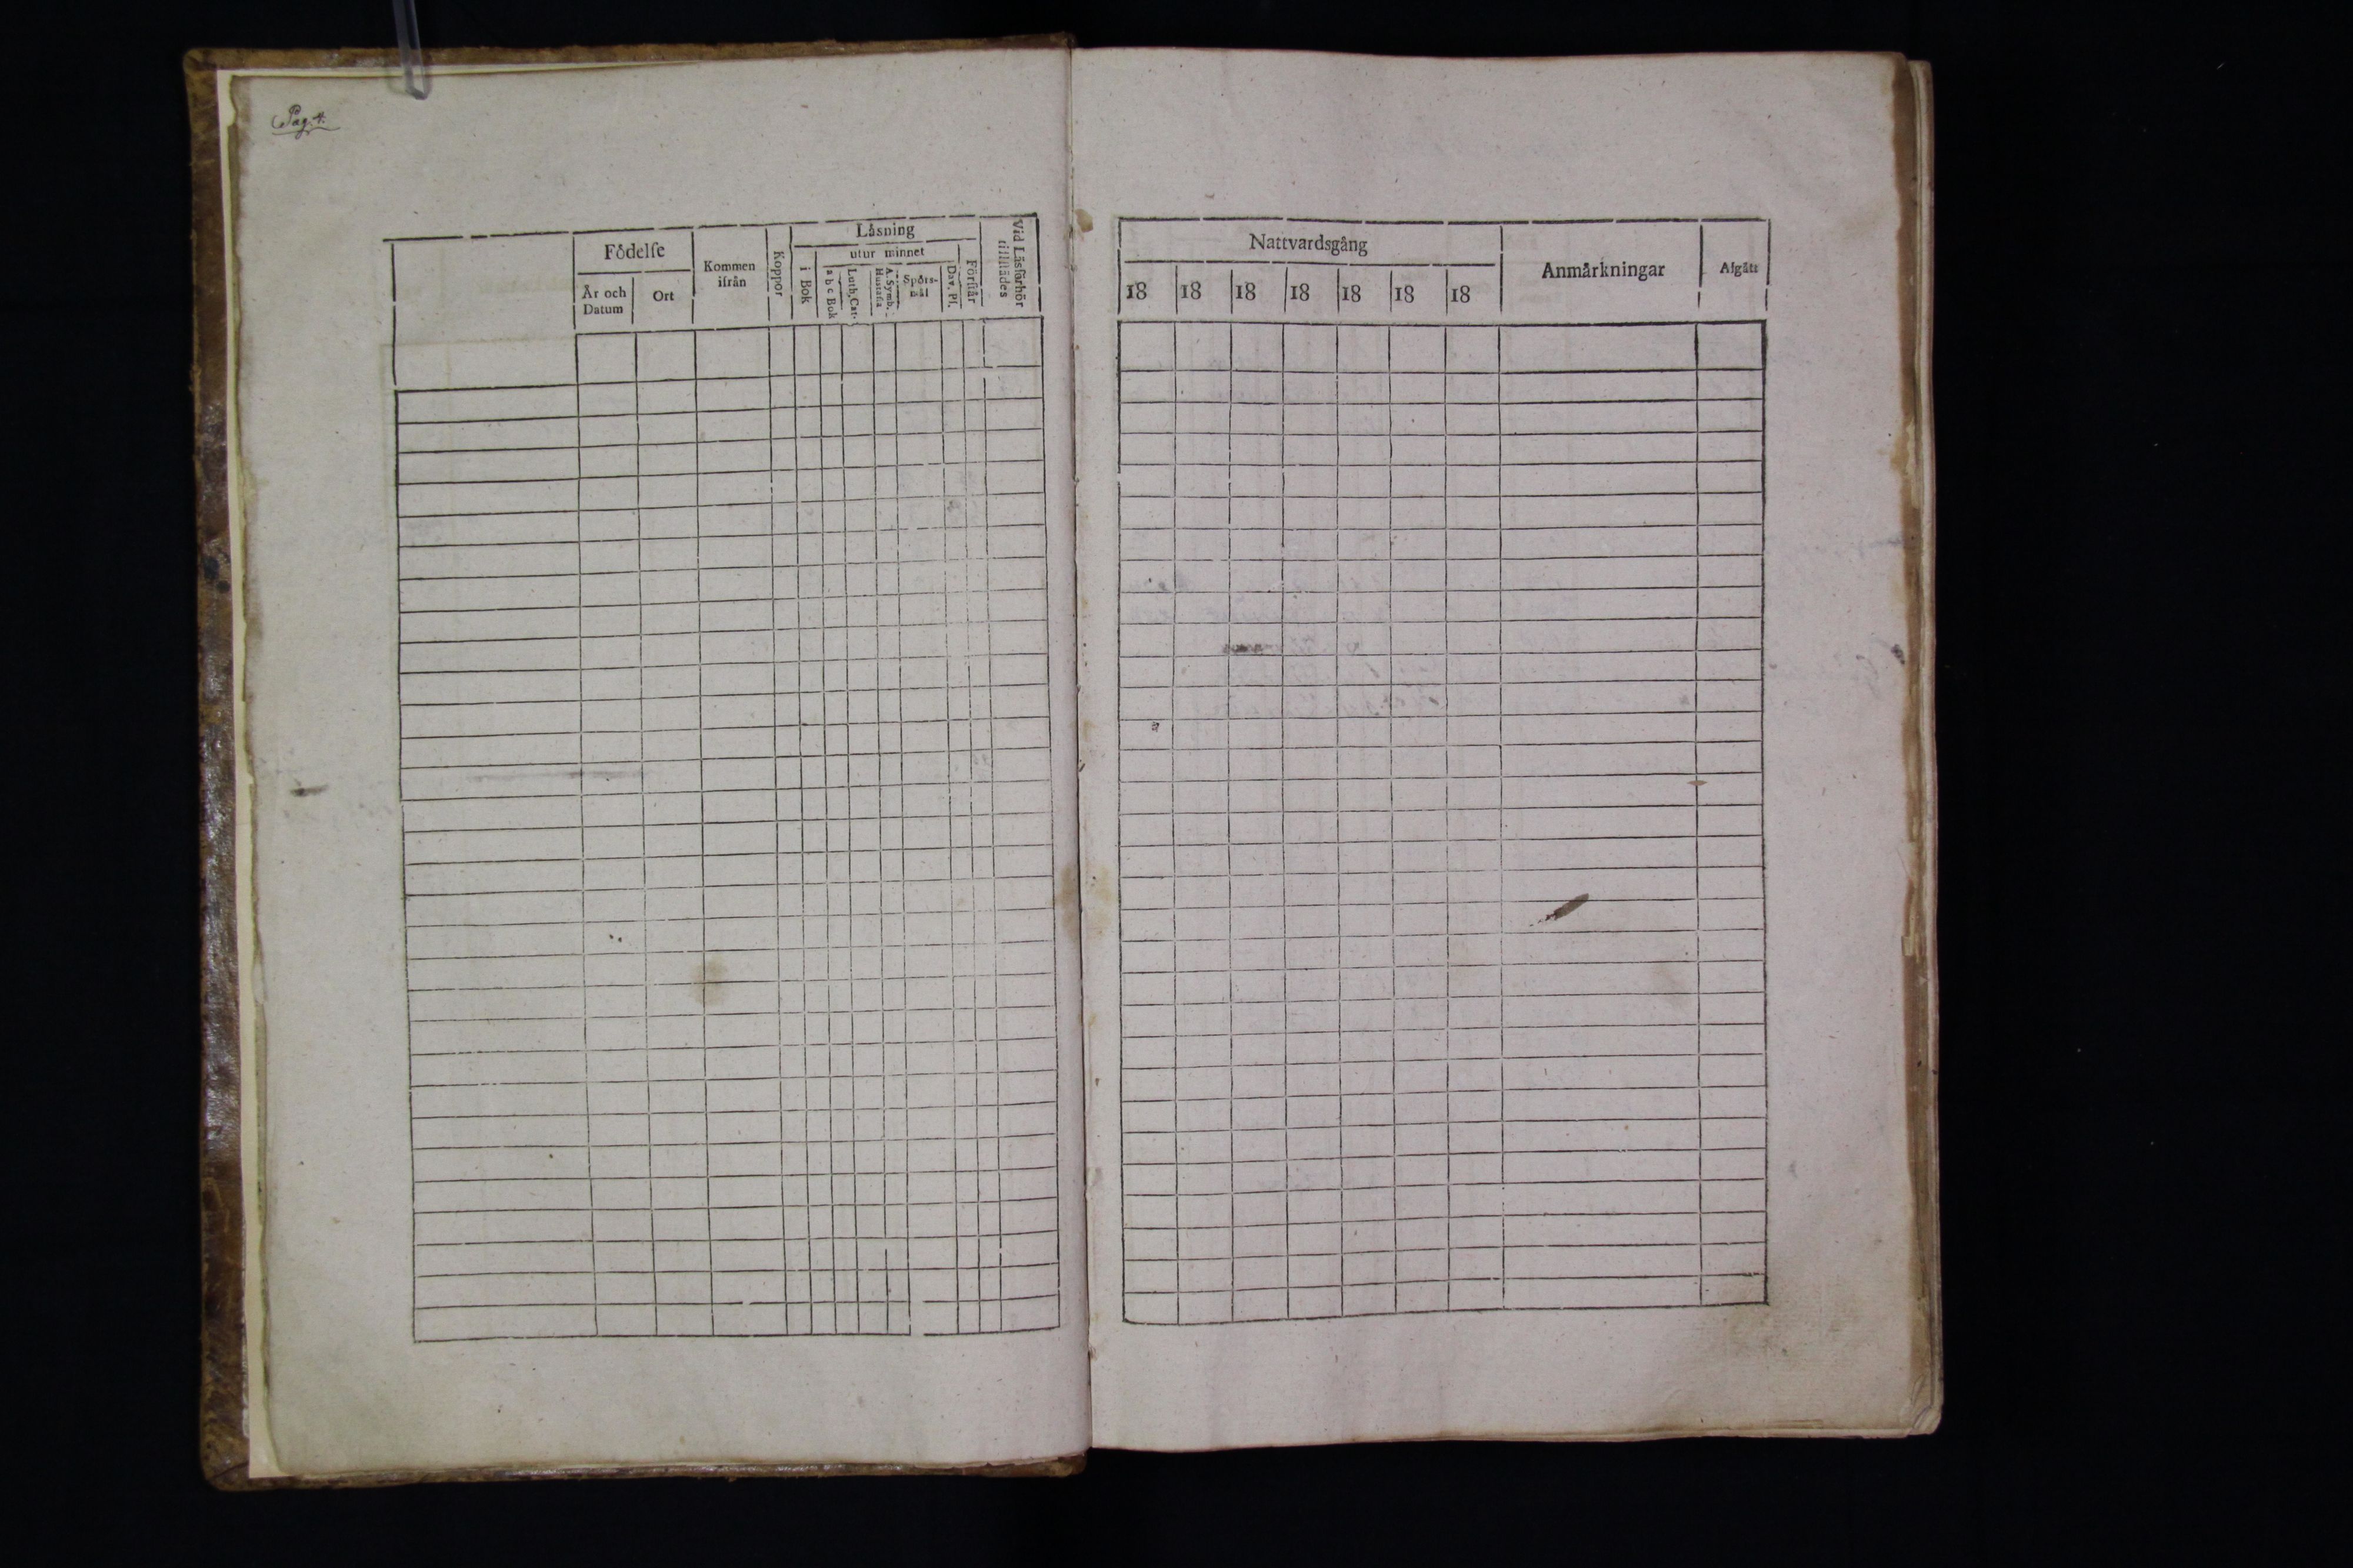 Pag. 4.
Födelse
År och Datum
Ort
Kommen ifrån
Koppor
Läsning
i Bok
utur minnet
a b c Bok
Luth. Cat.
A. Symb. Hustafla
Spörs-mål
Dav. Ps.
Förstår
Vid Läsförhör tillstädes
Nattvardsgång
18 18 18 18 18 18 18
Anmärkningar
Afgått